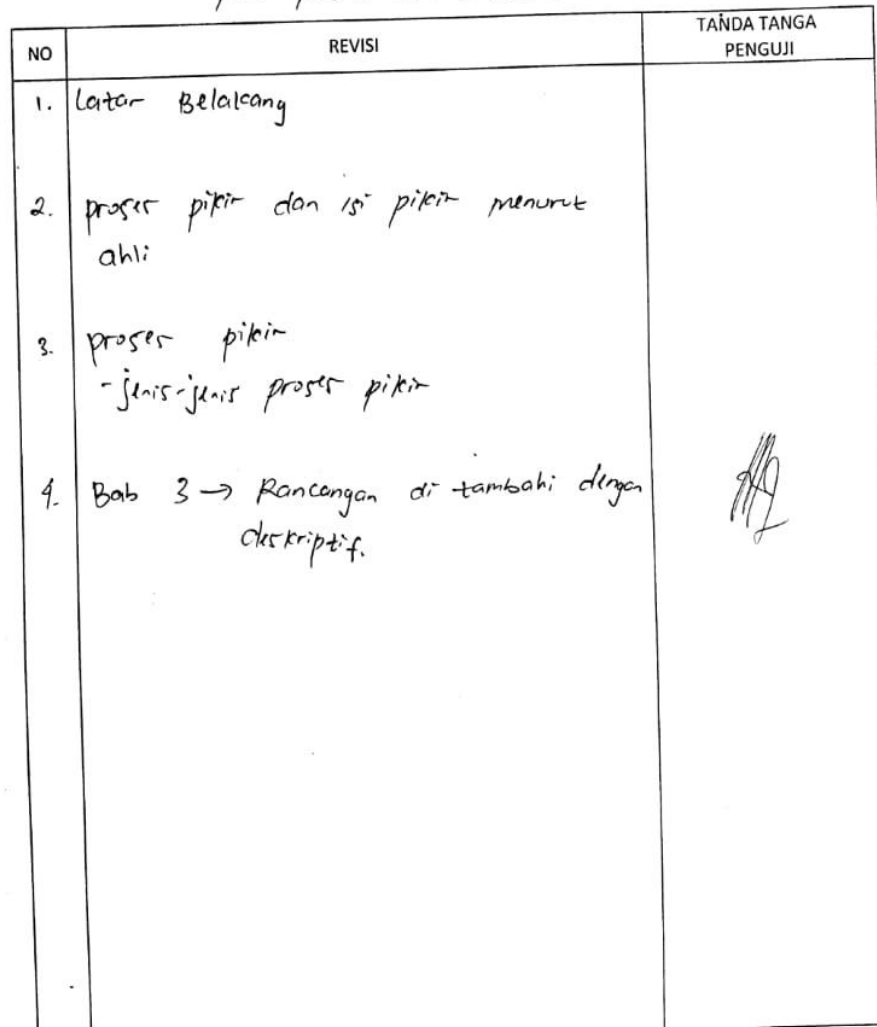 NO REVISI TANDA TANGA
PENGUJI
1. Latar Belakang
2. proses pikir dan isi pikir menurut
ahli
3. proses pikir
- jenis-jenis proses pikir
4. Bab 3 → Rancangan di tambahi dengan
deskriptif.